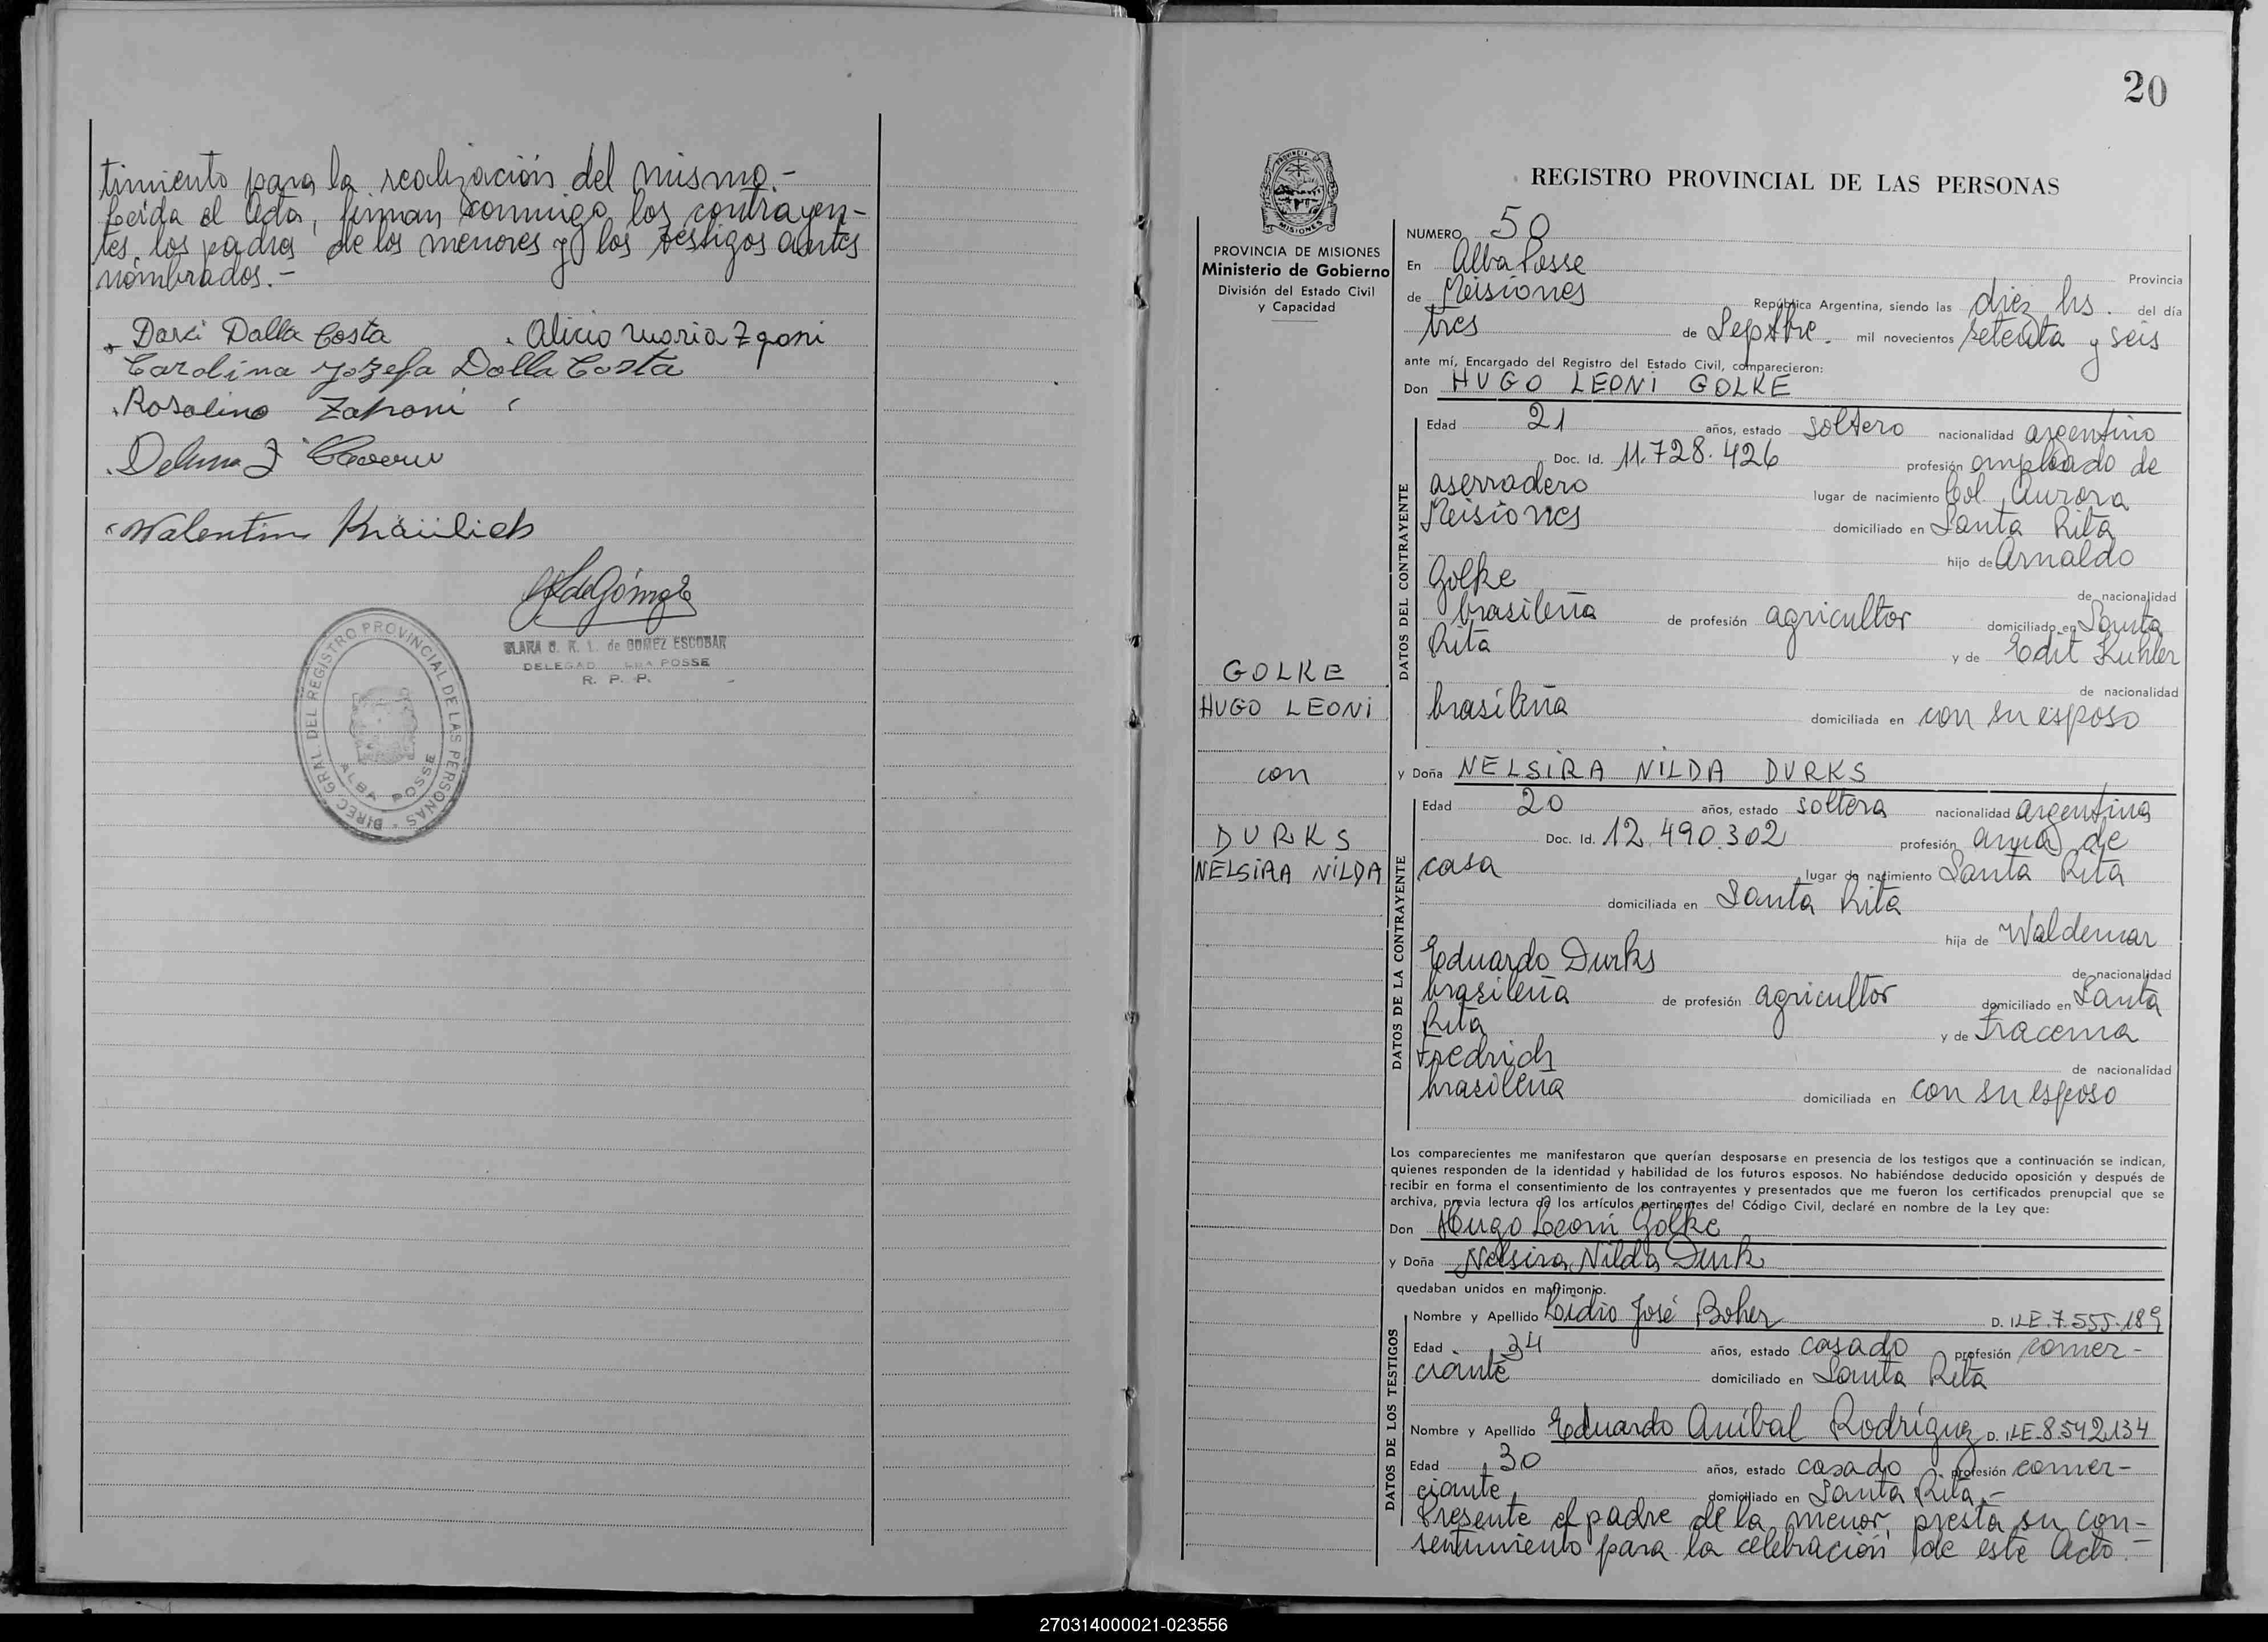 timiento para la realización del mismo.-
Leída el Acta, firman conmigo los contrayen-
tes, los padres de los menores y los testigos antes
nombrados.-
Darci Dalla Costa
Alicia Maria Zanoni
Carolina Jozefa Dalla Costa
Rosalino Zanoni
Valentin
CLARA de GOMEZ ESCOBAR
DELEGAD POSSE
R. P. P.
DIREC GRAL DEL REGISTRO PROVINCIAL DE LAS PERSONAS -
ALBA POSSE
20
PROVINCIA DE
MISIONES
PROVINCIA DE MISIONES
Ministerio de Gobierno
División del Estado Civil
y Capacidad
GOLKE
HUGO LEONI
con
DURKS
NELSIRA NILDA
REGISTRO PROVINCIAL DE LAS PERSONAS
NUMERO 50
En Alba Posse Provincia
de Misiones República Argentina, siendo las diez hs. del día
tres de Septbre. mil novecientos setenta y seis
ante mí, Encargado del Registro del Estado Civil, comparecieron:
Don HUGO LEONI GOLKE
DATOS DEL CONTRAYENTE
Edad 21 años, estado soltero nacionalidad argentino
Doc. Id. 11.728.426 profesión empleado de
aserradero lugar de nacimiento Col. Aurora
Misiones domiciliado en Santa Rita
hijo de Arnaldo
Golke de nacionalidad
brasileña de profesión agricultor domiciliado en Santa
Rita y de Edit Kuhler
de nacionalidad
brasileña domiciliada en con su esposo
y Doña NELSIRA NILDA DURKS
DATOS DE LA CONTRAYENTE
Edad 20 años, estado soltera nacionalidad argentina
Doc. Id. 12.490.302 profesión ama de
casa lugar de nacimiento Santa Rita
domiciliada en Santa Rita
hija de Waldemar
Eduardo Durks de nacionalidad
brasileña de profesión agricultor domiciliado en Santa
Rita y de Iracema
Fredrich de nacionalidad
brasileña domiciliada en con su esposo
Los comparecientes me manifestaron que querían desposarse en presencia de los testigos que a continuación se indican,
quienes responden de la identidad y habilidad de los futuros esposos. No habiéndose deducido oposición y después de
recibir en forma el consentimiento de los contrayentes y presentados que me fueron los certificados prenupcial que se
archiva, previa lectura de los artículos pertinentes del Código Civil, declaré en nombre de la Ley que:
Don Hugo Leoni Golke
y Doña Nelsira Nilda Durk
quedaban unidos en matrimonio.
DATOS DE LOS TESTIGOS
Nombre y Apellido Lidio José Boher D. I LE.7.555.189
Edad 34 años, estado casado profesión comer-
ciante domiciliado en Santa Rita
Nombre y Apellido Eduardo Aníbal Rodríguez D. I LE.8.542.134
Edad 30 años, estado casado profesión comer-
ciante domiciliado en Santa Rita.-
Presente el padre de la menor, presta su con-
sentimiento para la celebración de este Acto.-
270314000021-023556